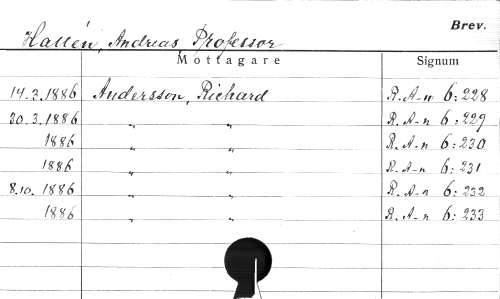 Brev.
Hallén, Andreas, Professor
Mottagare Signum
14.2.1886 Andersson, Richard R. A-n 6:228
30.3.1886 " " R. A-n 6:229
1886 " " R. A-n 6:230
1886 " " R. A-n 6:231
8.10.1886 " " R. A-n 6:232
1886 " " R. A-n 6:233